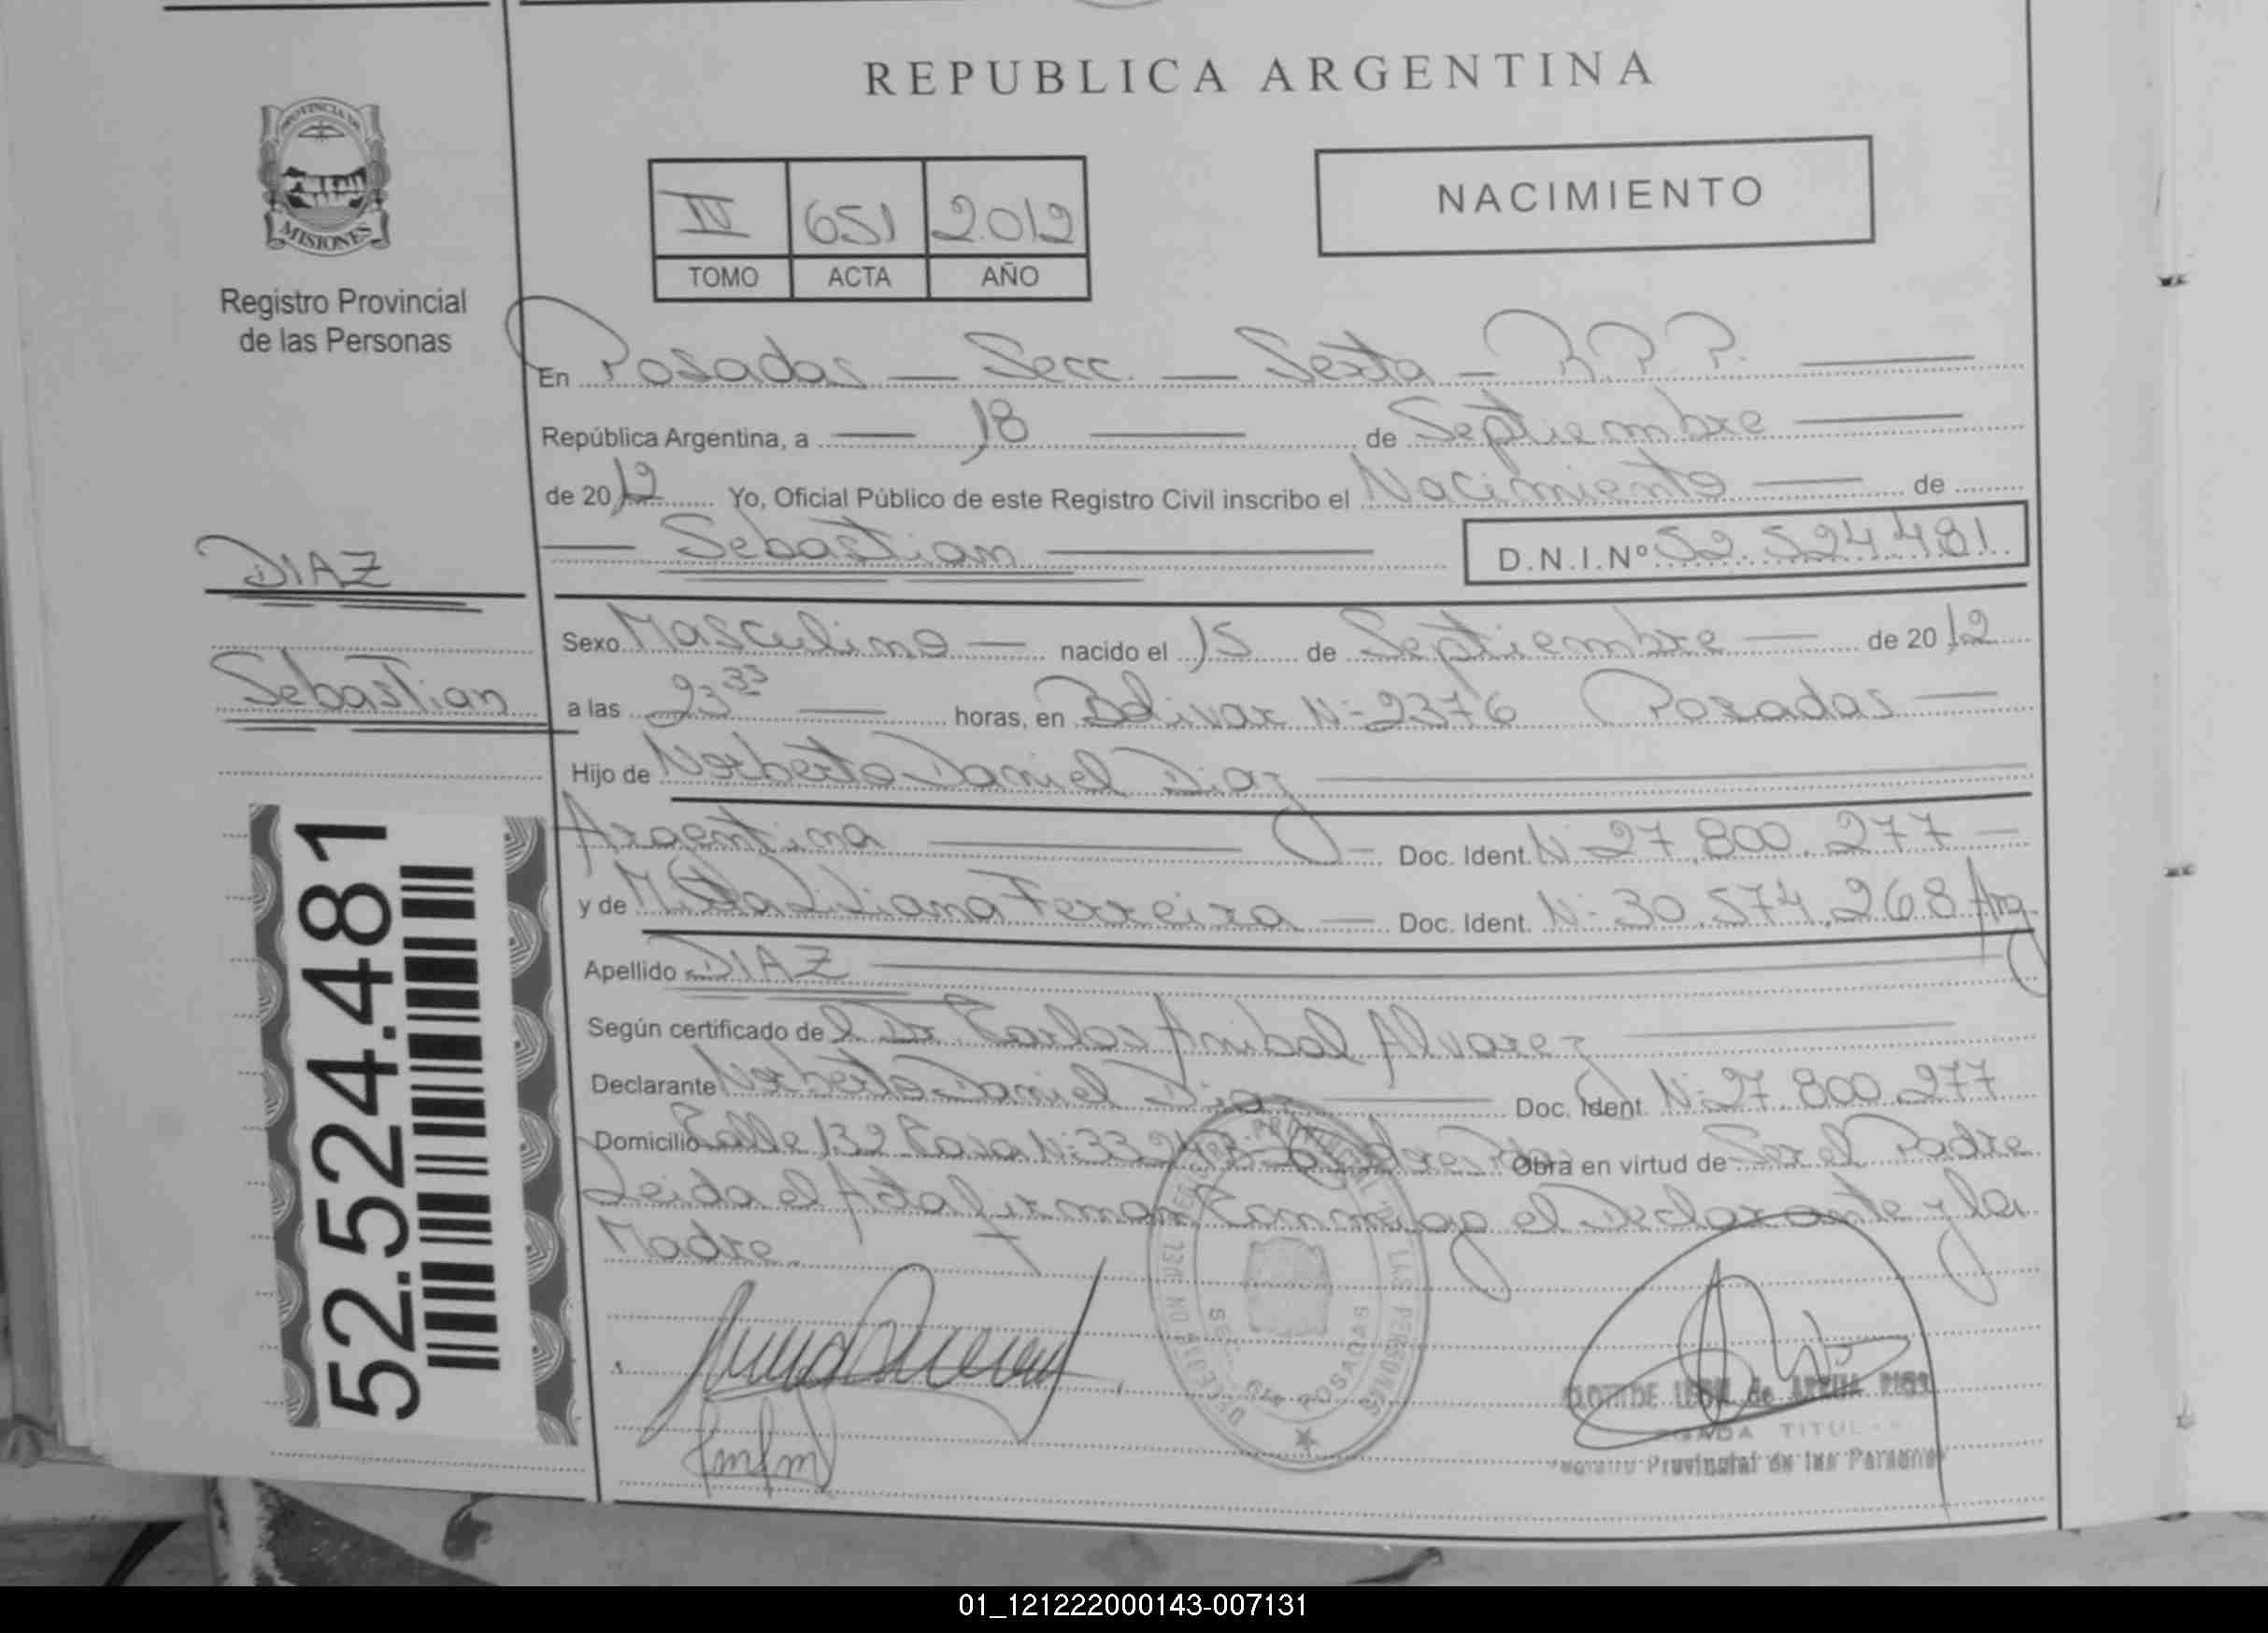 REPUBLICA ARGENTINA
PROVINCIA DE
MISIONES
Registro Provincial
de las Personas
IV 651 2012
TOMO ACTA AÑO
NACIMIENTO
En Posadas — Secc. — Sexta — R.P.P.
República Argentina, a — 18 — de Septiembre
de 2012 Yo, Oficial Público de este Registro Civil inscribo el Nacimiento — de
— Sebastian — D.N.I.Nº 52.524.481
DIAZ
Sebastian
Sexo Masculino — nacido el 15 de Septiembre — de 2012
a las 23 33 — horas, en Bolivar Nº 2376 Posadas —
Hijo de Norberto Daniel Diaz
Argentina — Doc. Ident. Nº 27.800.277 —
y de Liliana Ferreira — Doc. Ident. Nº 30.574.268 Arg.
Apellido DIAZ
Según certificado del Dr. Carlos Anibal Alvarez
Declarante Norberto Daniel Diaz — Doc. Ident. Nº 27.800.277
Domicilio Calle 132 Casa Nº Obra en virtud de Ser el Padre
Leida el Acta firman Conmigo el Declarante y la
Madre.
52.524.481
POSADAS
TITUL
Provincial de las Personas
01_121222000143-007131